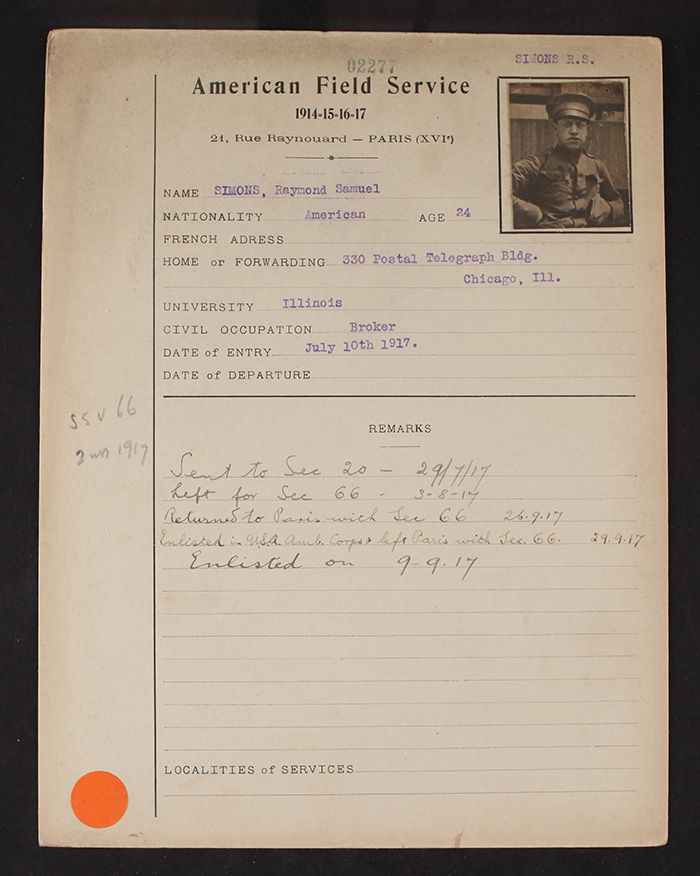 02277
SIMONS R.S.
American Field Service
1914-15-16-17
21, Rue Raynouard — PARIS (XVIe)
NAME SIMONS, Raymond Samuel
NATIONALITY American AGE 24
FRENCH ADRESS
HOME or FORWARDING 330 Postal Telegraph Bldg.
Chicago, Ill.
UNIVERSITY Illinois
CIVIL OCCUPATION Broker
DATE of ENTRY July 10th 1917.
DATE of DEPARTURE
SSU 66
2 1917
REMARKS
Sent to Sec 20 — 29/7/17
Left for Sec 66 - 3-8-17
Returned to Paris with Sec 66 26.9.17
Enlisted in U.S.A. Amb. Corps & left Paris with Sec. 66. 29.9.17
Enlisted on 9-9.17
LOCALITIES of SERVICES